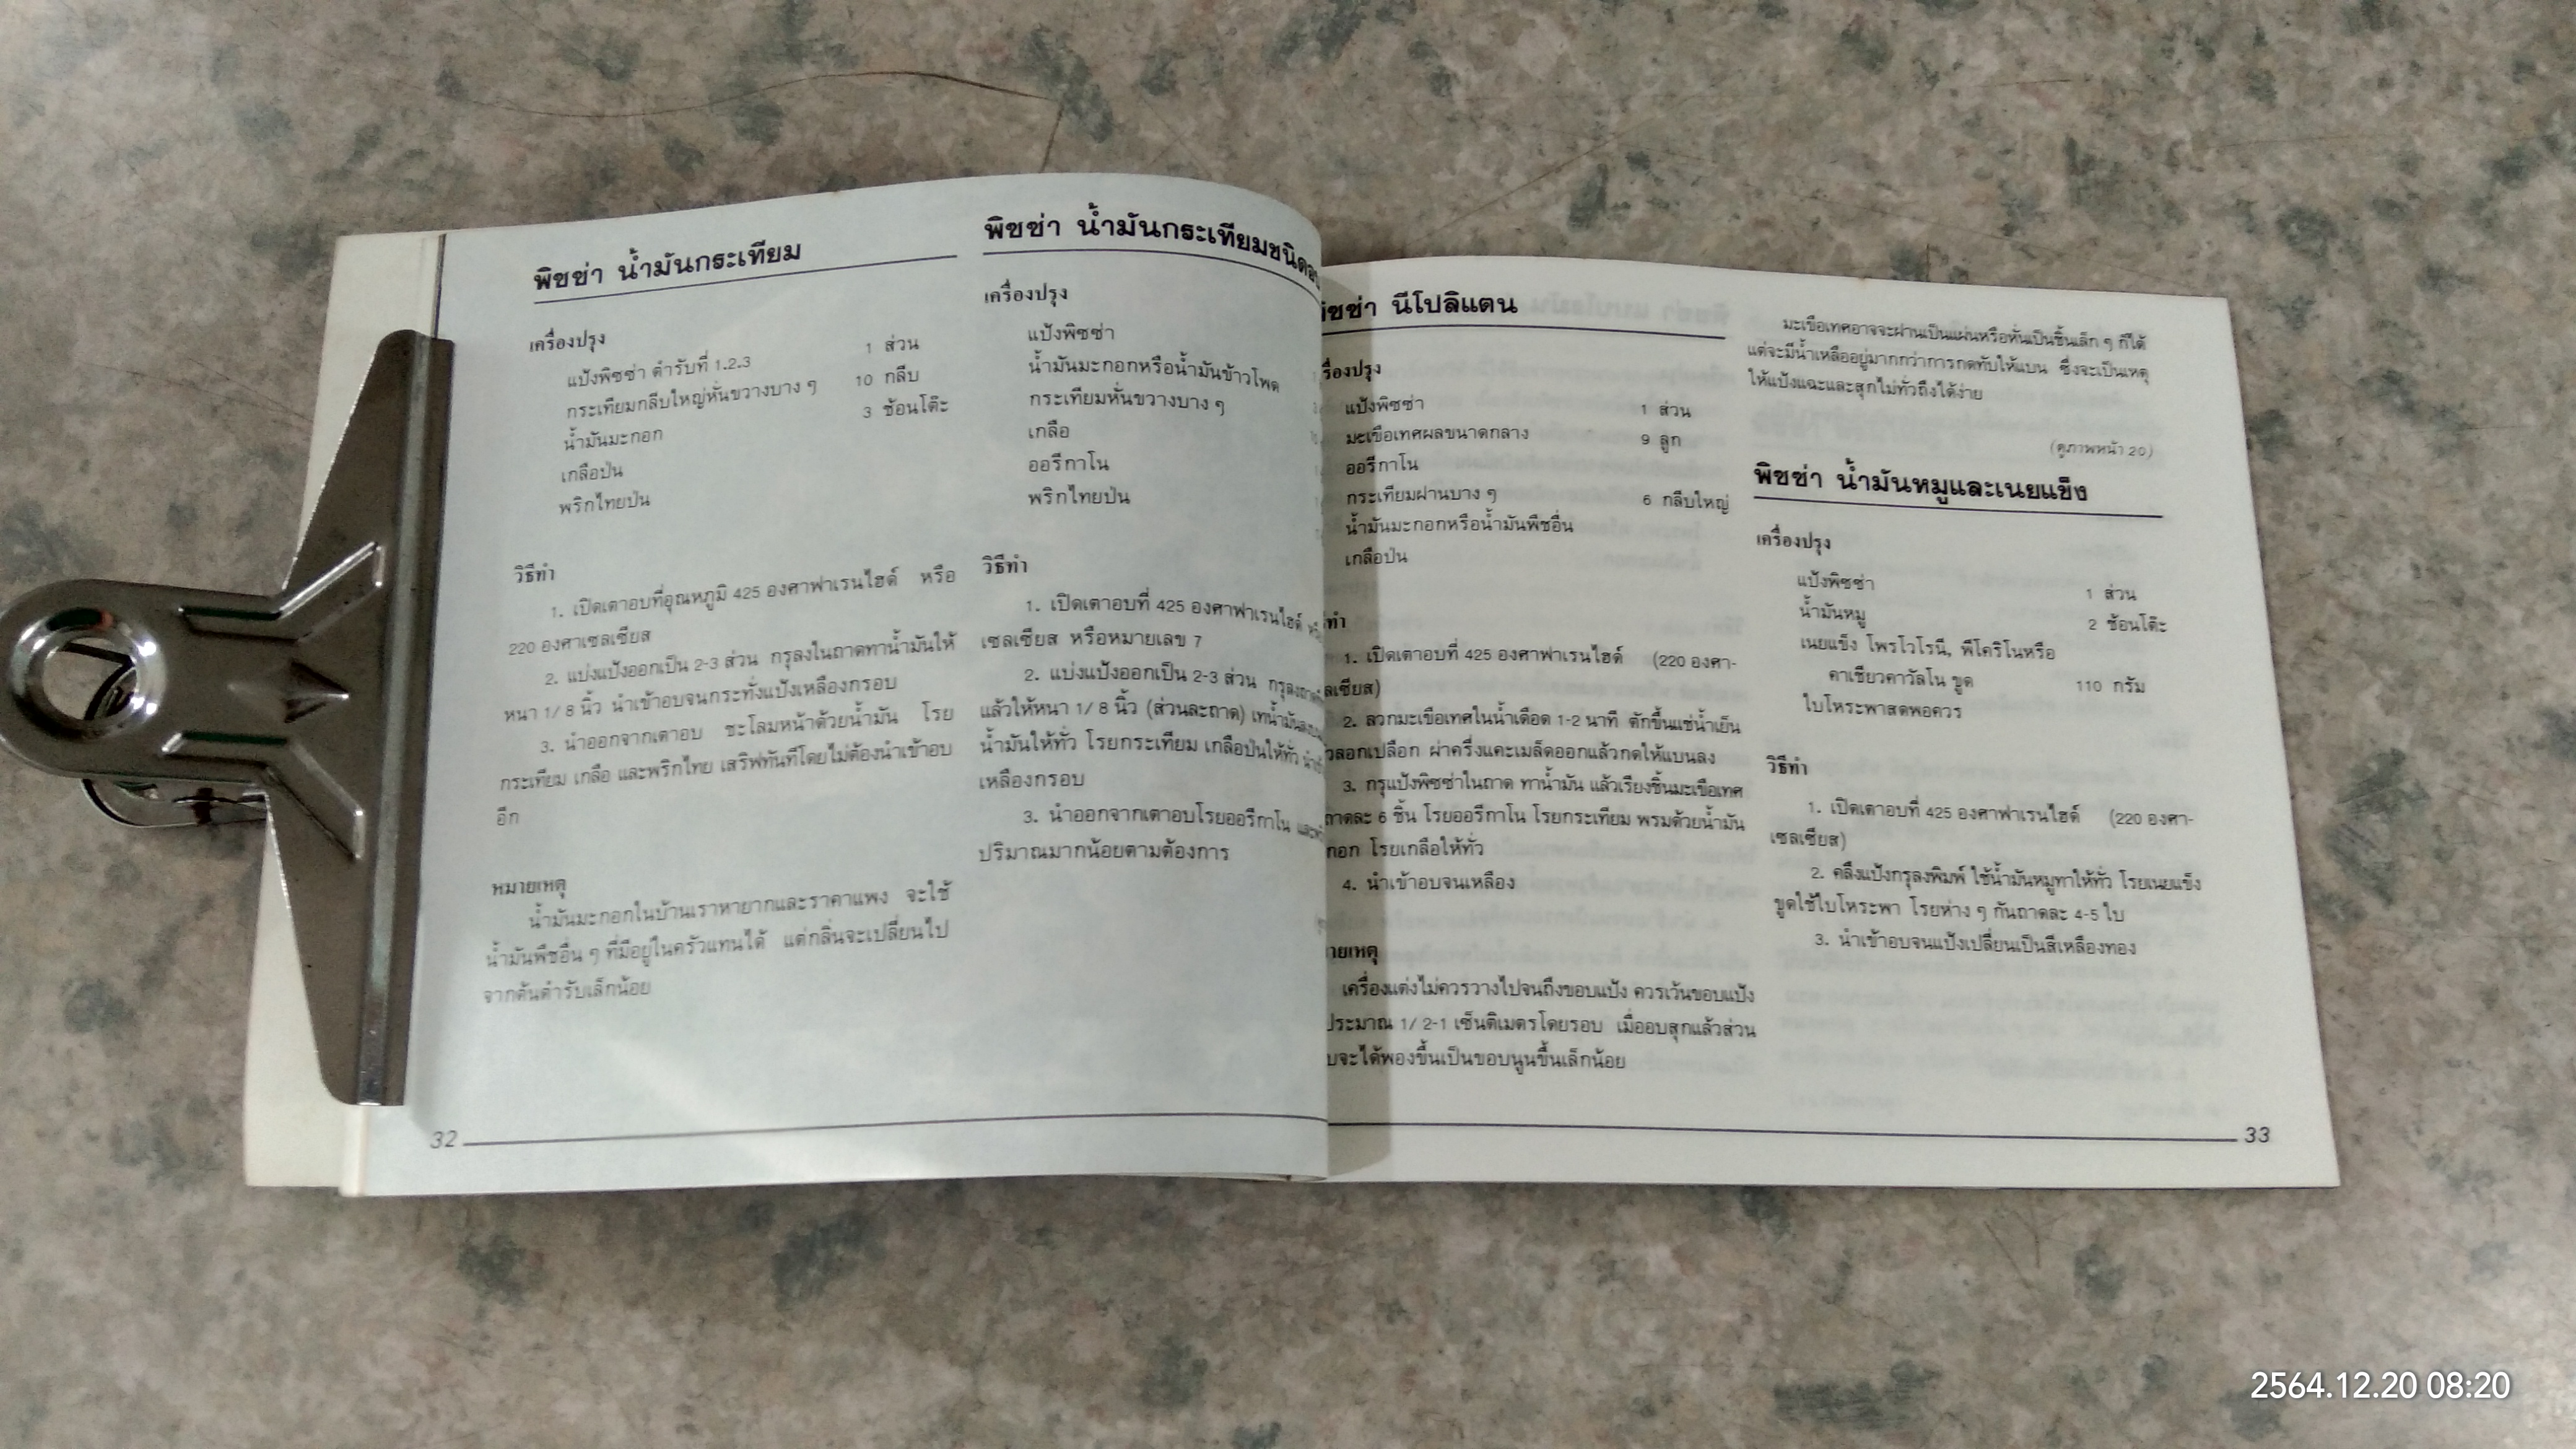 พิซซ่า น้ำมันกระเทียม
เครื่องปรุง
แป้งพิซซ่า ตำรับที่ 1.2.3 1 ส่วน
กระเทียมกลีบใหญ่หั่นขวางบาง ๆ 10 กลีบ
น้ำมันมะกอก 3 ช้อนโต๊ะ
เกลือป่น
พริกไทยป่น
วิธีทำ
1. เปิดเตาอบที่อุณหภูมิ 425 องศาฟาเรนไฮด์ หรือ
220 องศาเซลเซียส
2. แบ่งแป้งออกเป็น 2-3 ส่วน กรุลงในถาดทาน้ำมันให้
หนา 1/8 นิ้ว นำเข้าอบจนกระทั่งแป้งเหลืองกรอบ
3. นำออกจากเตาอบ ชะโลมหน้าด้วยน้ำมัน โรย
กระเทียม เกลือ และพริกไทย เสริฟทันทีโดยไม่ต้องนำเข้าอบ
อีก
หมายเหตุ
น้ำมันมะกอกในบ้านเราหายากและราคาแพง จะใช้
น้ำมันพืชอื่น ๆ ที่มีอยู่ในครัวแทนได้ แต่กลิ่นจะเปลี่ยนไป
จากต้นตำรับเล็กน้อย
พิซซ่า น้ำมันกระเทียมชนิด
เครื่องปรุง
แป้งพิซซ่า
น้ำมันมะกอกหรือน้ำมันข้าวโพด
กระเทียมหั่นขวางบาง ๆ
เกลือ
ออรีกาโน
พริกไทยป่น
วิธีทำ
1. เปิดเตาอบที่ 425 องศาฟาเรนไฮด์
เซลเซียส หรือหมายเลข 7
2. แบ่งแป้งออกเป็น 2-3 ส่วน กรุลงถาด
แล้วให้หนา 1/8 นิ้ว (ส่วนละถาด) เทน้ำมัน
น้ำมันให้ทั่ว โรยกระเทียม เกลือป่นให้ทั่ว
เหลืองกรอบ
3. นำออกจากเตาอบโรยออรีกาโน
ปริมาณมากน้อยตามต้องการ
32
พิซซ่า นีโปลิแตน
รื่องปรุง
แป้งพิซซ่า 1 ส่วน
มะเขือเทศผลขนาดกลาง 9 ลูก
ออรีกาโน
กระเทียมฝานบาง ๆ 6 กลีบใหญ่
น้ำมันมะกอกหรือน้ำมันพืชอื่น
เกลือป่น
ทำ
1. เปิดเตาอบที่ 425 องศาฟาเรนไฮด์ (220 องศา-
ลเซียส)
2. ลวกมะเขือเทศในน้ำเดือด 1-2 นาที ตักขึ้นแช่น้ำเย็น
วลอกเปลือก ผ่าครึ่งแคะเมล็ดออกแล้วกดให้แบนลง
3. กรุแป้งพิซซ่าในถาด ทาน้ำมัน แล้วเรียงชิ้นมะเขือเทศ
ถาดละ 6 ชิ้น โรยออรีกาโน โรยกระเทียม พรมด้วยน้ำมัน
กอก โรยเกลือให้ทั่ว
4. นำเข้าอบจนเหลือง
ายเหตุ
เครื่องแต่งไม่ควรวางไปจนถึงขอบแป้ง ควรเว้นขอบแป้ง
ประมาณ 1/2-1 เซ็นติเมตรโดยรอบ เมื่ออบสุกแล้วส่วน
บจะได้พองขึ้นเป็นขอบนูนขึ้นเล็กน้อย
มะเขือเทศอาจจะฝานเป็นแผ่นหรือหั่นเป็นชิ้นเล็ก ๆ ก็ได้
แต่จะมีน้ำเหลืออยู่มากกว่าการกดทับให้แบน ซึ่งจะเป็นเหตุ
ให้แป้งแฉะและสุกไม่ทั่วถึงได้ง่าย
(ดูภาพหน้า 20)
พิซซ่า น้ำมันหมูและเนยแข็ง
เครื่องปรุง
แป้งพิซซ่า 1 ส่วน
น้ำมันหมู 2 ช้อนโต๊ะ
เนยแข็ง โพรโวโรนี, พีโคริโนหรือ
คาเชียวคาวัลโน ขูด 110 กรัม
ใบโหระพาสดพอควร
วิธีทำ
1. เปิดเตาอบที่ 425 องศาฟาเรนไฮด์ (220 องศา-
เซลเซียส)
2. คลึงแป้งกรุลงพิมพ์ ใช้น้ำมันหมูทาให้ทั่ว โรยเนยแข็ง
ขูดใช้ใบโหระพา โรยห่าง ๆ กันถาดละ 4-5 ใบ
3. นำเข้าอบจนแป้งเปลี่ยนเป็นสีเหลืองทอง
33
2564.12.20 08:20